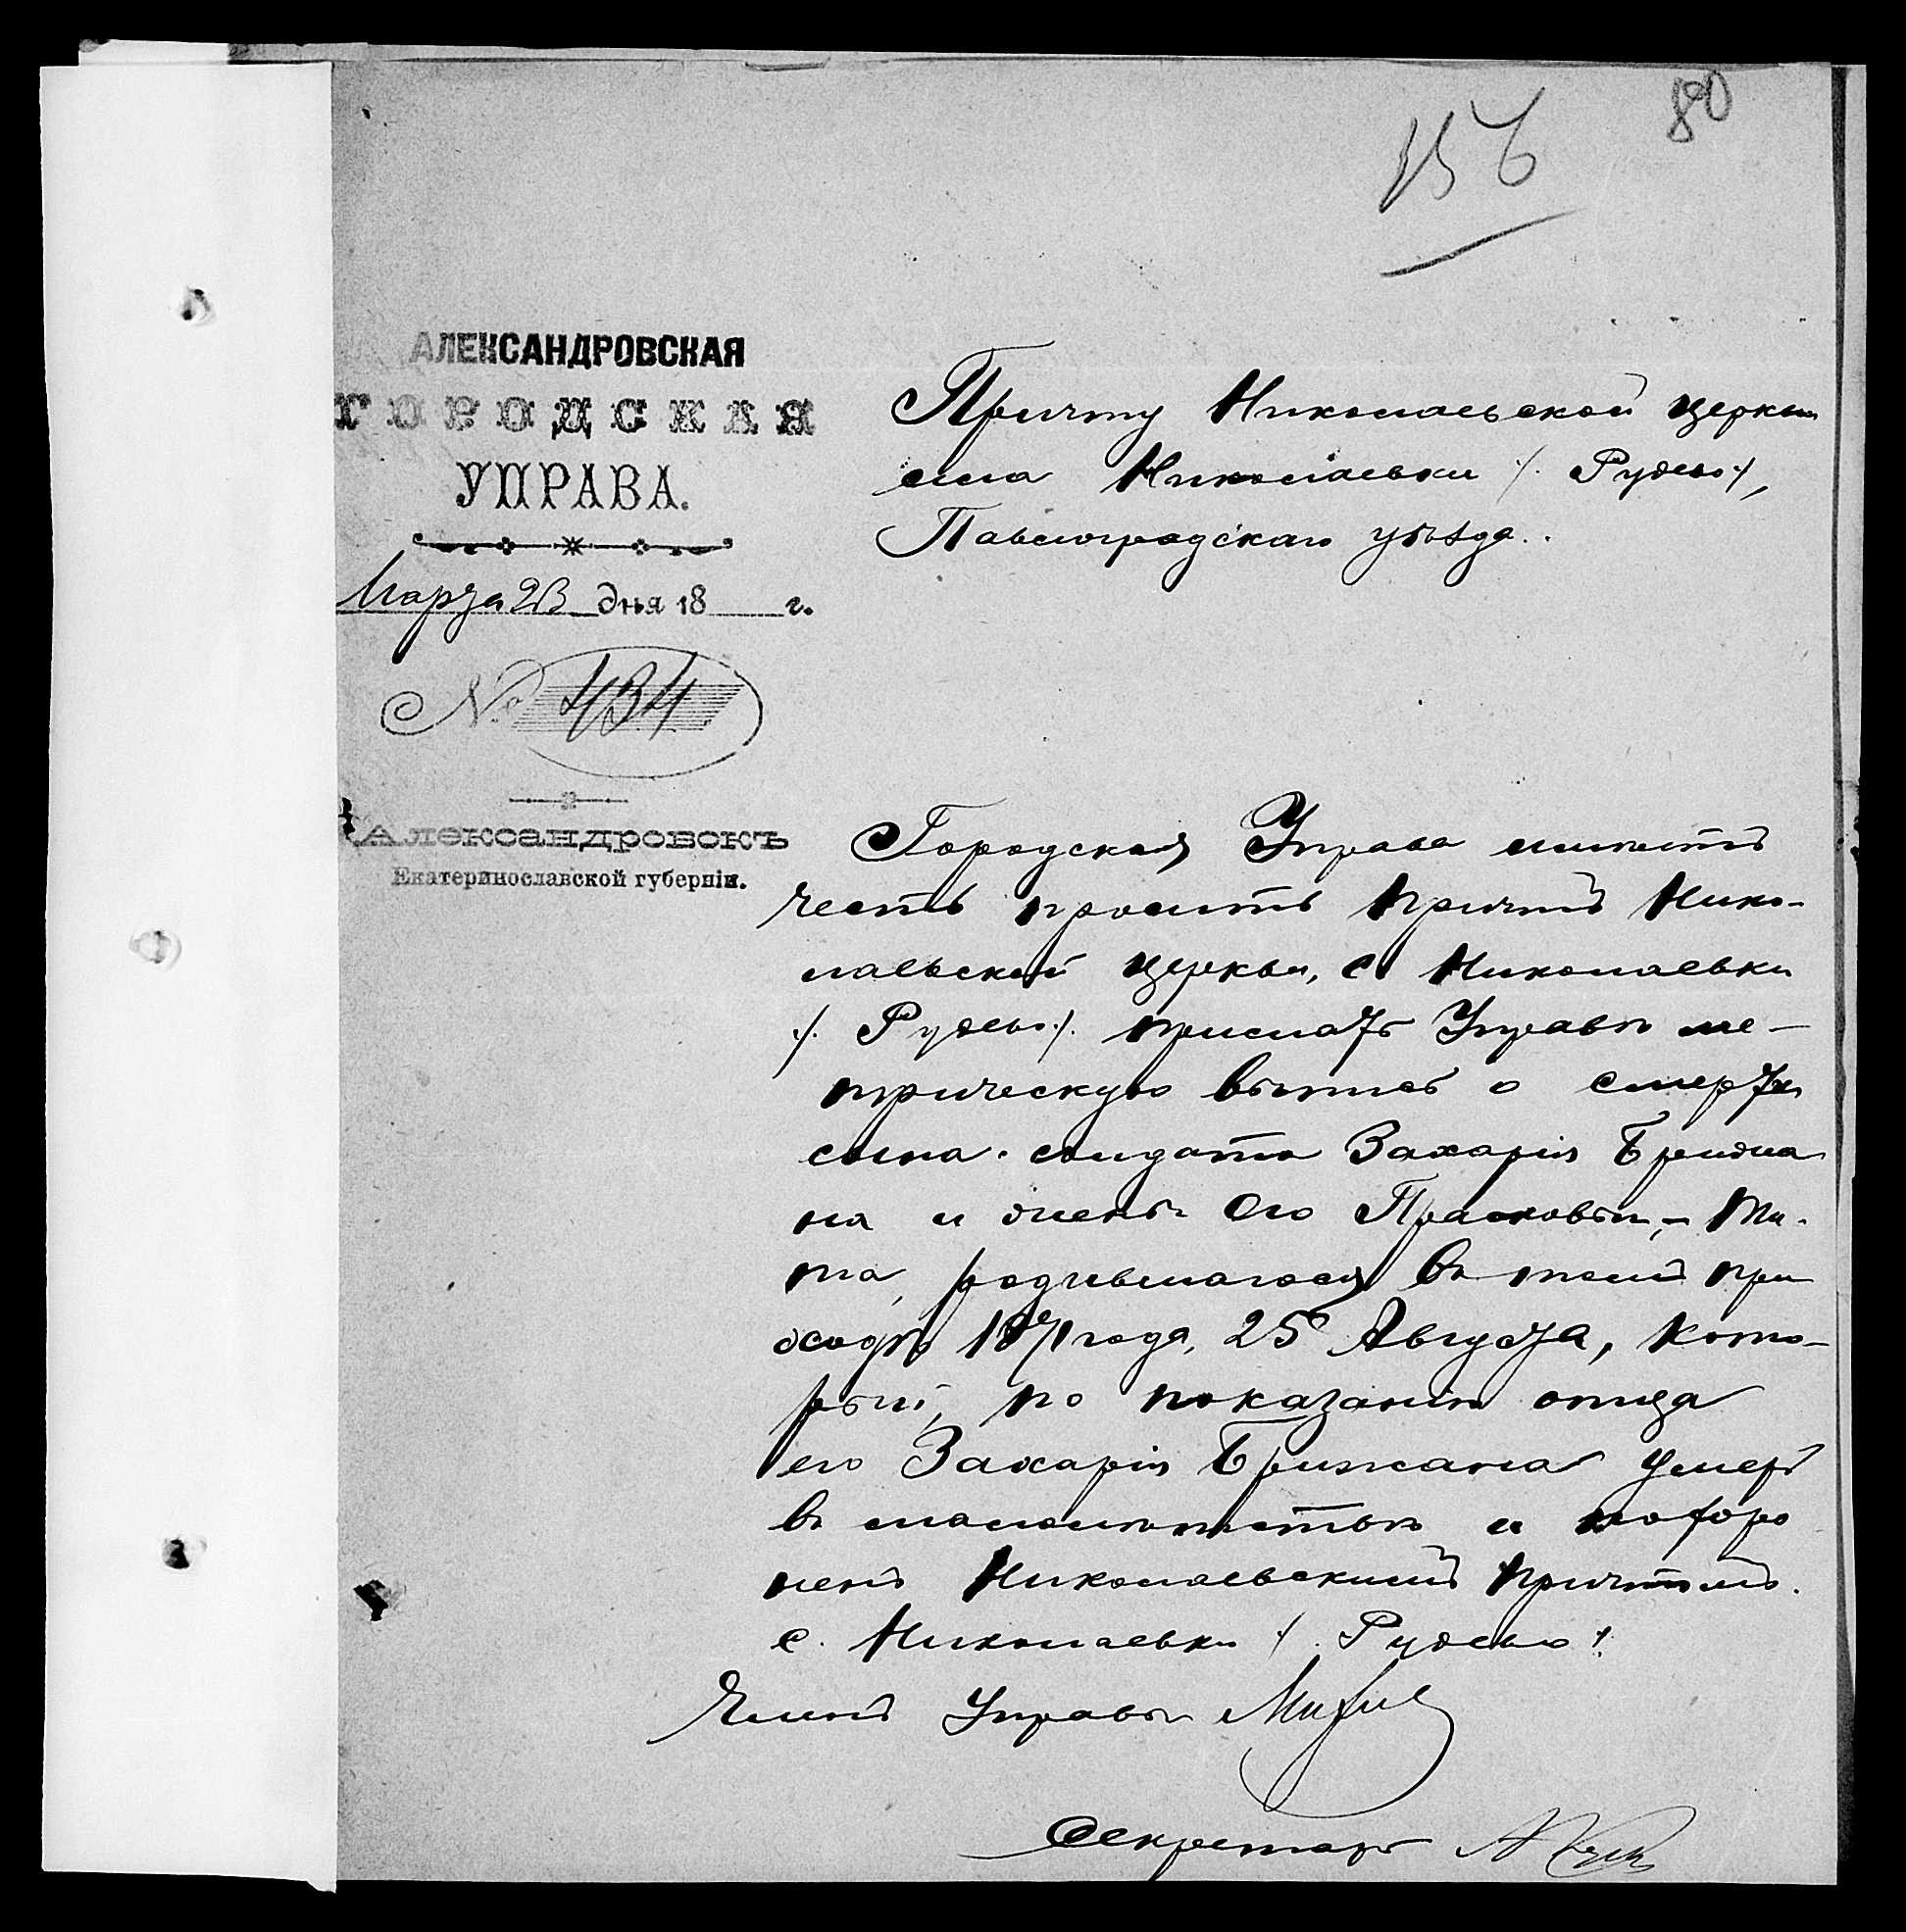 80
156
АЛЕКСАНДРОВСКАЯ
ГОРОДСКАЯ
УПРАВА.
Марта 23 дня 18 г.
№ 434
Александровскъ
Екатеринославской губерніи.
Причту Николаевской церкви
села Николаевки /. Рудево ./,
Павлоградскаго уѣзда..
Городская Управа имѣетъ
честь просить причтъ Нико-
лаевской церкви, с Николаевки
./. Рудево ./. прислать Управѣ ме-
трическую выпись о смерти
сына солдата Захарія Брижа
на и жены его Прасковьи, – Ти-
та, родившагося въ томъ при
ходѣ 1871 года, 25 Августа, кото-
рый, по показанію отца
его Захарія Брижана умеръ
въ малолѣтствѣ и похоро
ненъ Николаевскимъ причтомъ
с. Николаевки /. Рудево ./.
Членъ Управы
Секретарь